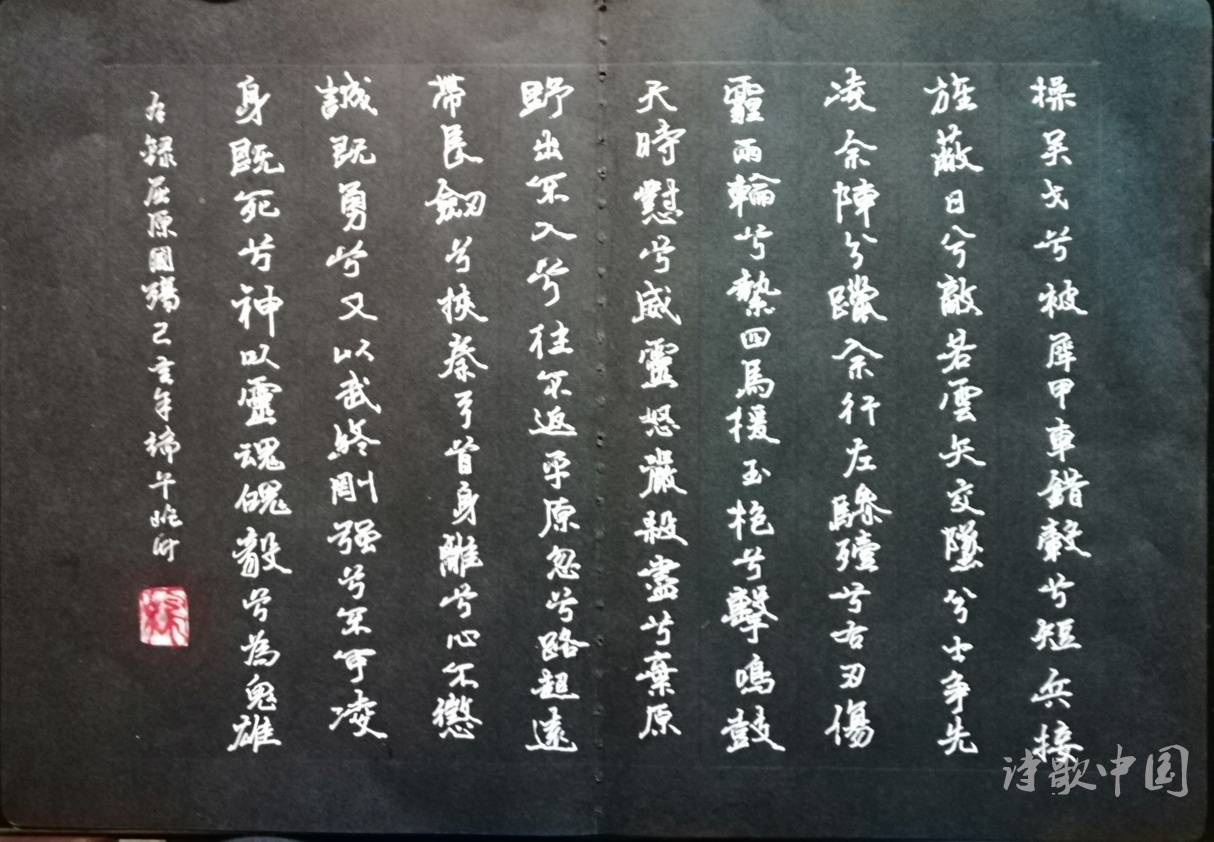 操吴戈兮被犀甲車錯轂兮短兵接
旌蔽日兮敵若雲矢交墜兮士争先
凌余陣兮躐余行左驂殪兮右刃傷
霾兩輪兮縶四馬援玉枹兮擊鳴鼓
天時懟兮威靈怒嚴殺盡兮棄原
野出不入兮往不返平原忽兮路超遠
帶長劍兮挾秦弓首身離兮心不懲
誠既勇兮又以武終剛强兮不可凌
身既死兮神以靈魂魄毅兮為鬼雄
右録屈原國殤己亥年端午
诗歌中国